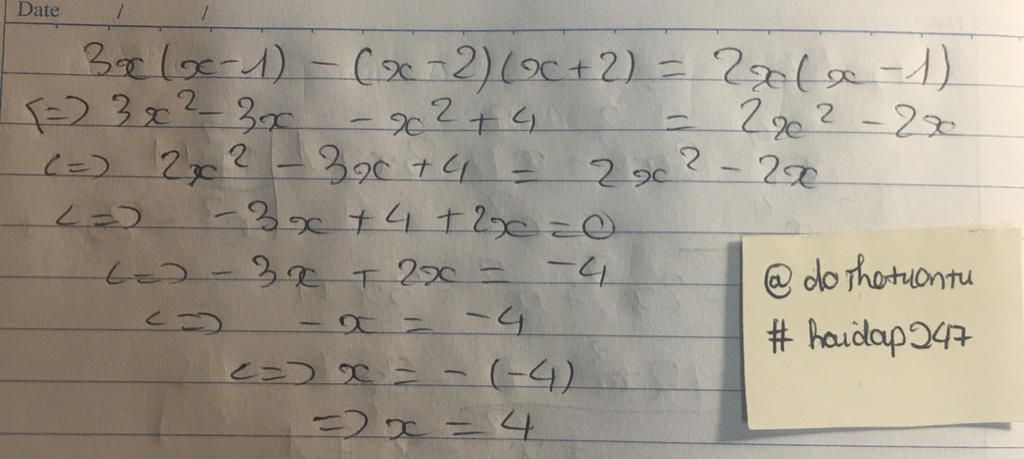 Date / /
3x(x-1) - (x-2)(x+2) = 2x(x-1)
<=> 3x² - 3x - x² + 4 = 2x² - 2x
<=> 2x² - 3x + 4 = 2x² - 2x
<=> -3x + 4 + 2x = 0
<=> -3x + 2x = -4
<=> -x = -4
<=> x = - (-4)
=> x = 4
@ dothotuontu
# hoidap247